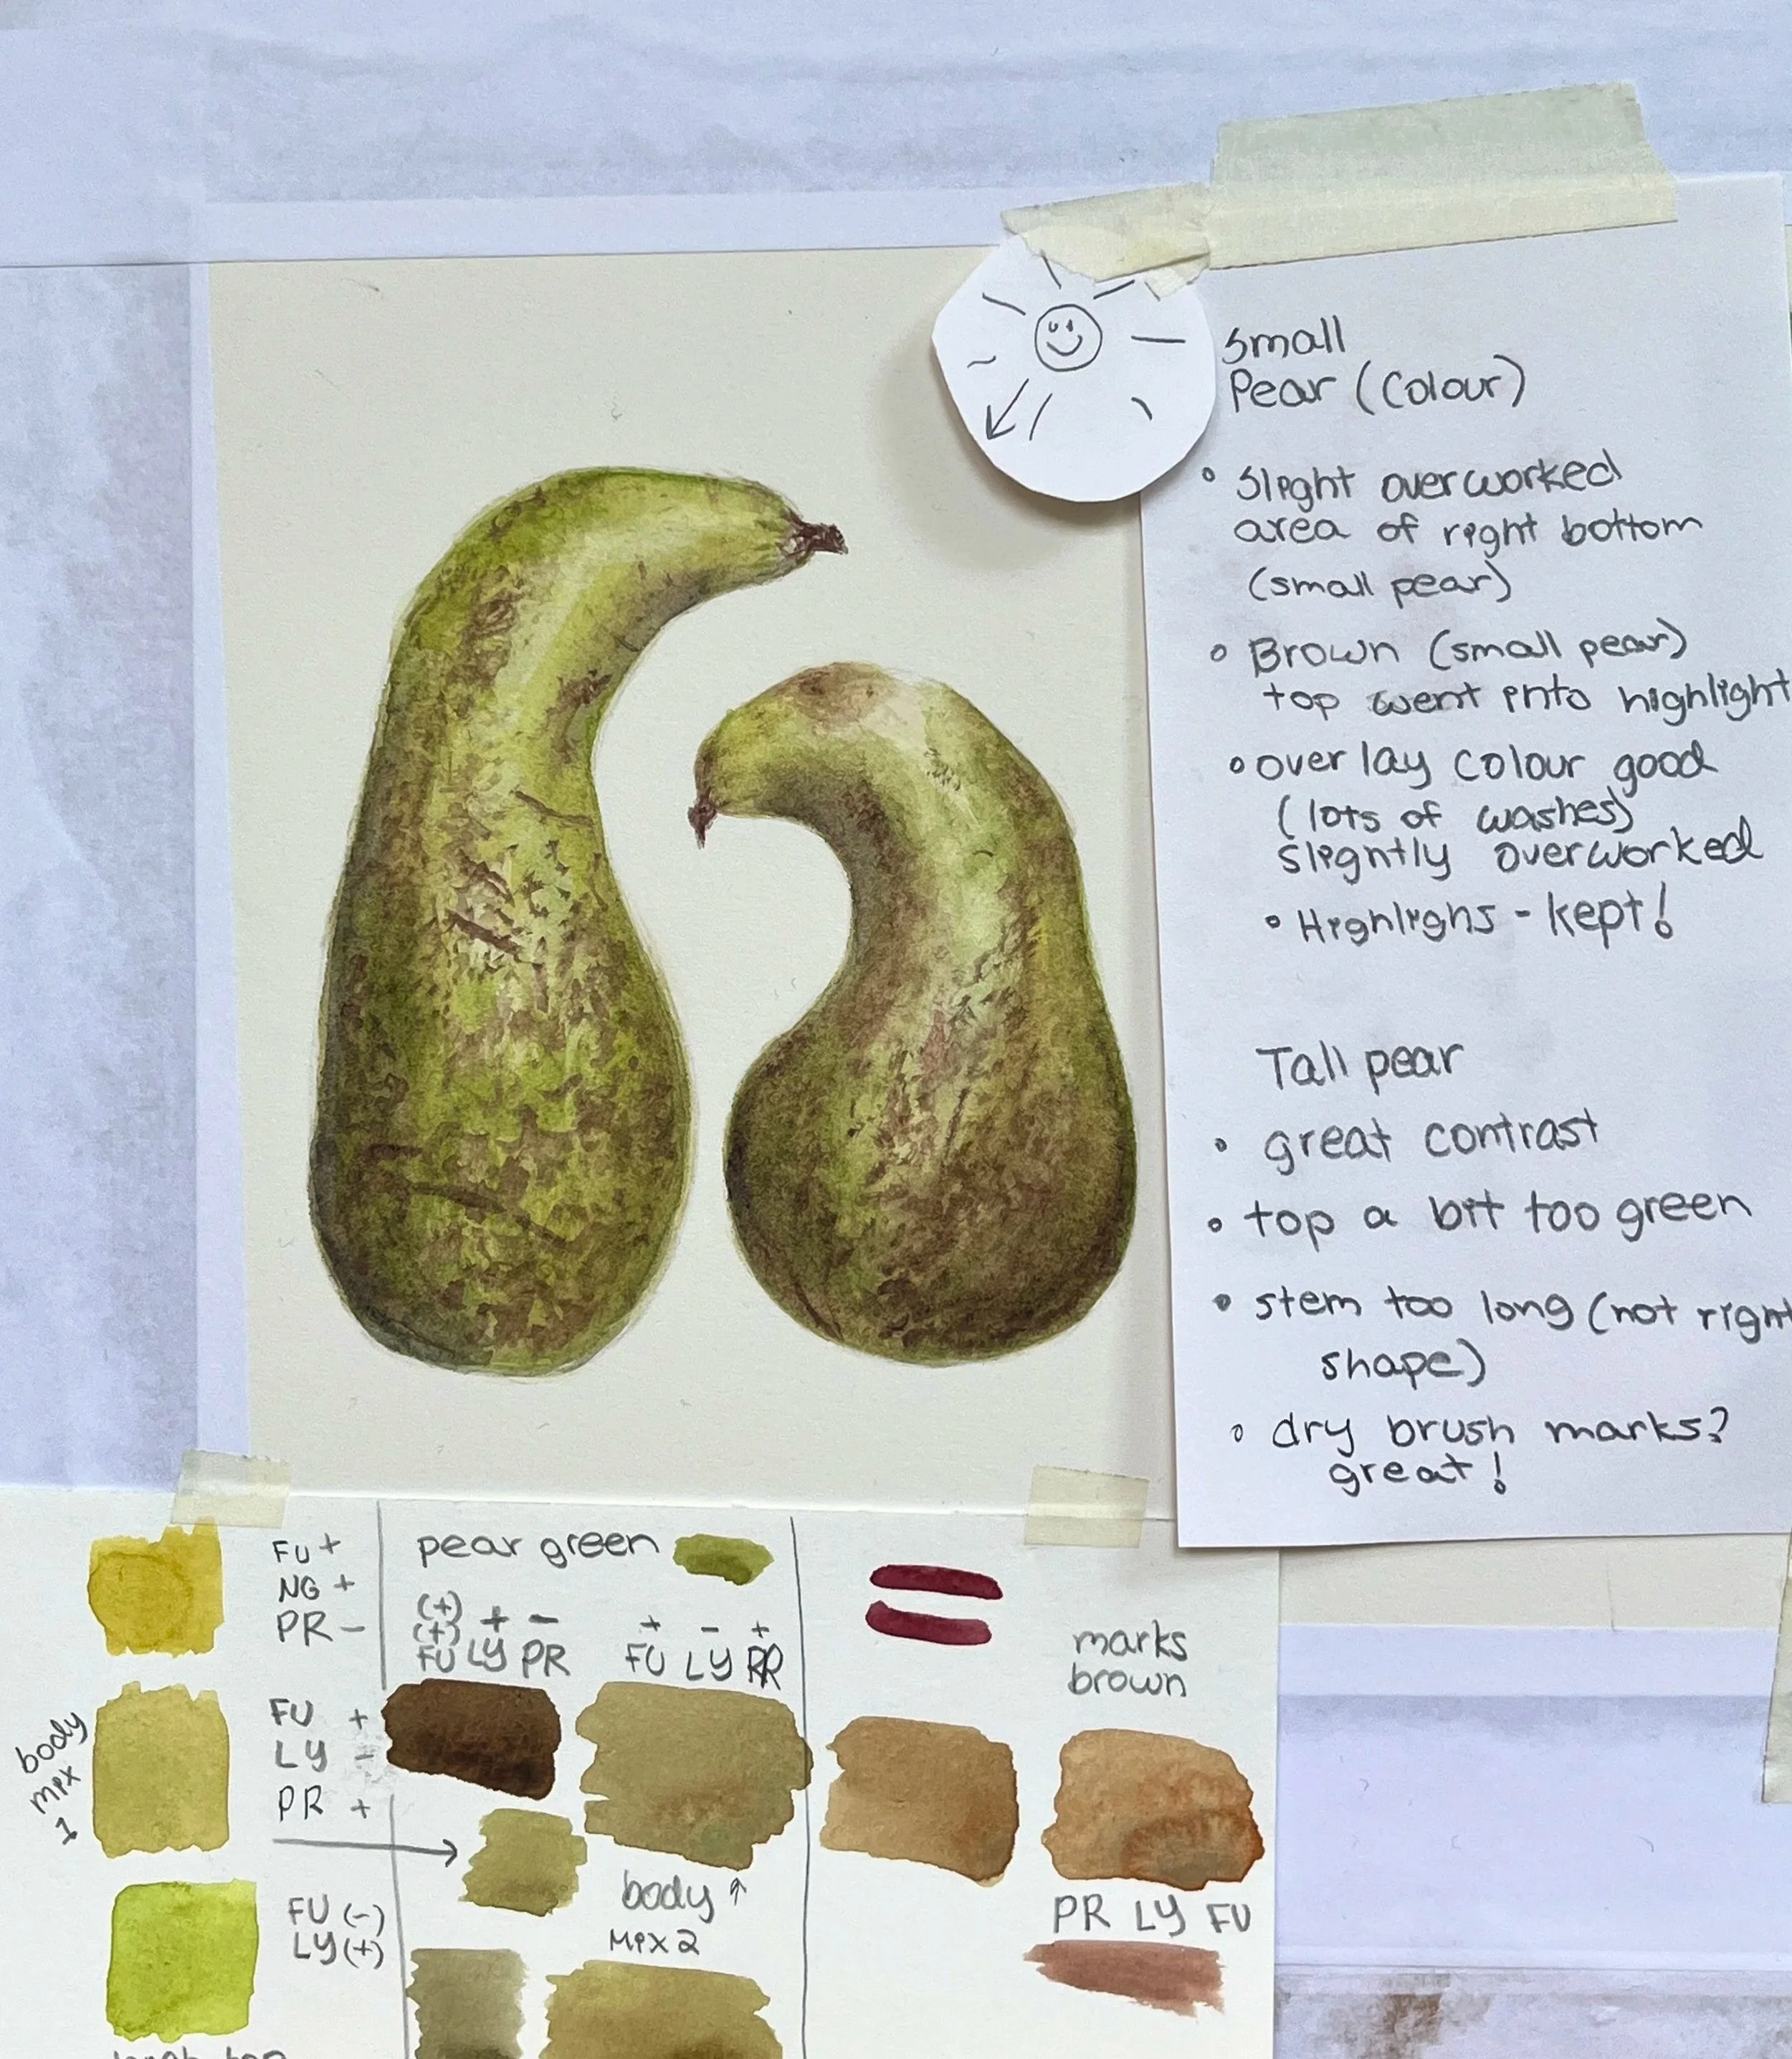 Small
Pear (Colour)
• Slight overworked
area of right bottom
(small pear)
• Brown (small pear)
top went into highlight
• over lay colour good
(lots of washes)
slightly overworked
• Highlighs - kept!
Tall pear
• great contrast
• top a bit too green
• stem too long (not right
shape)
• dry brush marks?
great!
FU +
NG +
PR -
body
mix
1
FU +
LY -
PR +
FU (-)
LY (+)
pear green
(+)
(+) + -
FU LY PR
+ - +
FU LY PR
body ↑
Mix 2
marks
brown
PR LY FU